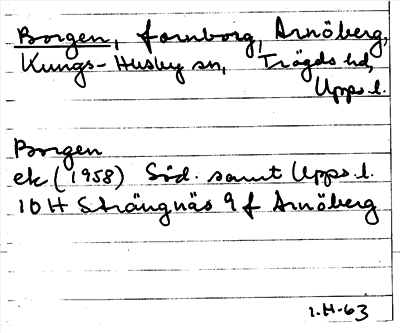 Borgen, fornborg, Arnöberg,
Kungs-Husby sn, Trögds hd,
Upps.l.
Borgen
ek (1958) Söd. samt Upps.l.
10H Strängnäs 9f Arnöberg
I.H-63